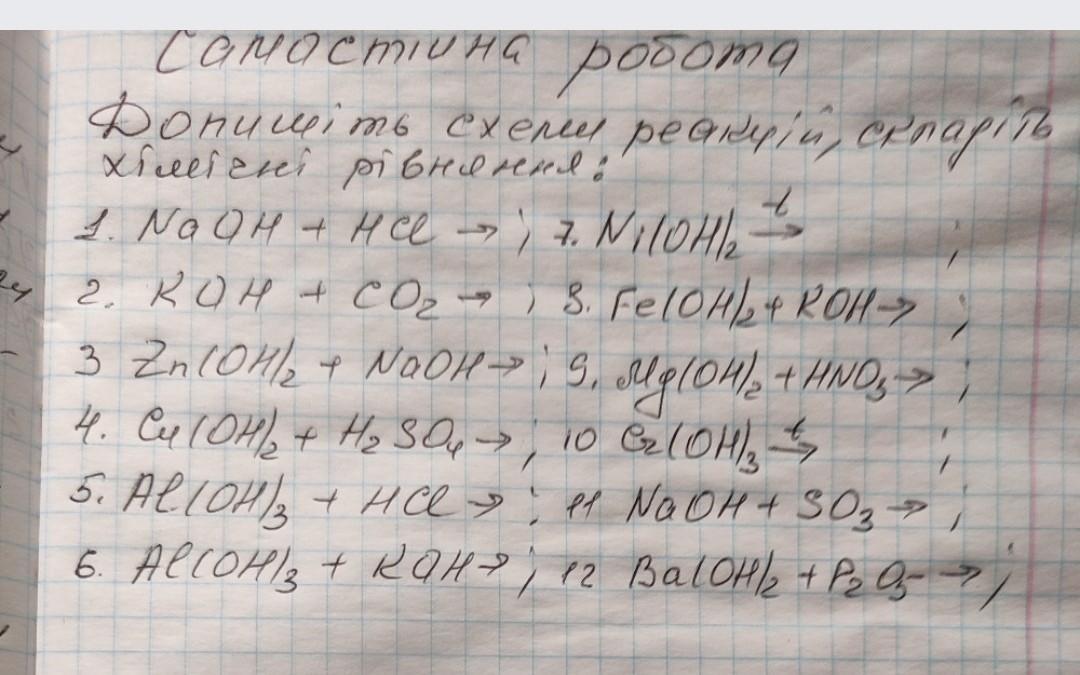 Самостійна робота
Допишіть схеми реакцій, складіть
хімічні рівняння:
1. NaOH + HCl → ; 7. Ni(OH)₂ —t→ ;
2. KOH + CO₂ → ; 8. Fe(OH)₂ + KOH → ;
3 Zn(OH)₂ + NaOH → ; 9. Mg(OH)₂ + HNO₃ → ;
4. Cu(OH)₂ + H₂SO₄ → ; 10 Cr(OH)₃ —t→ ;
5. Al(OH)₃ + HCl → ; 11 NaOH + SO₃ → ;
6. Al(OH)₃ + KOH → ; 12 Ba(OH)₂ + P₂O₅ → ;